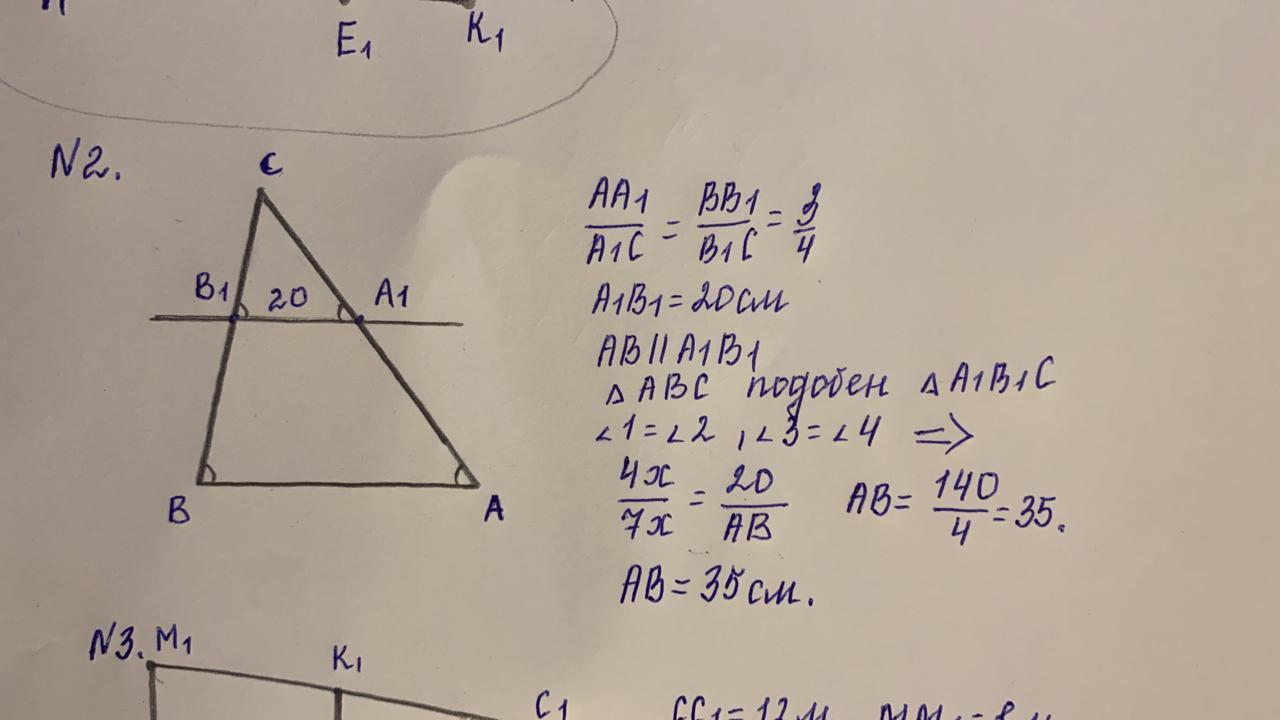 E1 K1
N2.
C
B1 20 A1
B A
AA1/A1C = BB1/B1C = 3/4
A1B1 = 20 см
AB || A1B1
△ ABC подобен △ A1B1C
∠1 = ∠2 , ∠3 = ∠4 ⇒
4x/7x = 20/AB AB = 140/4 = 35.
AB = 35 см.
N3. M1
K1
C1